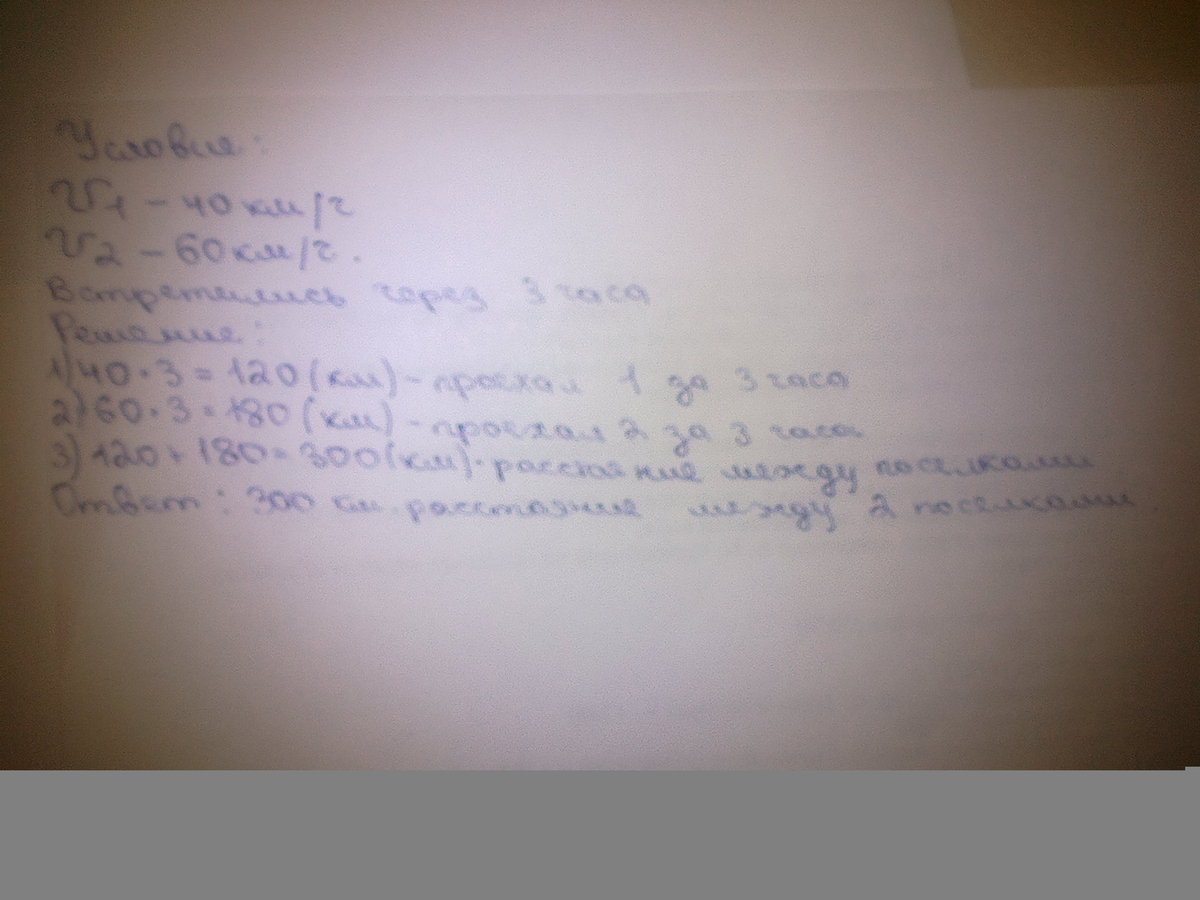 Условие:
V1 - 40 км/ч
V2 - 60 км/ч.
Встретились через 3 часа
Решение:
1) 40 · 3 = 120 (км) - проехал 1 за 3 часа
2) 60 · 3 = 180 (км) - проехал 2 за 3 часа
3) 120 + 180 = 300 (км) - расстояние между посёлками
Ответ: 300 км расстояние между 2 посёлками.